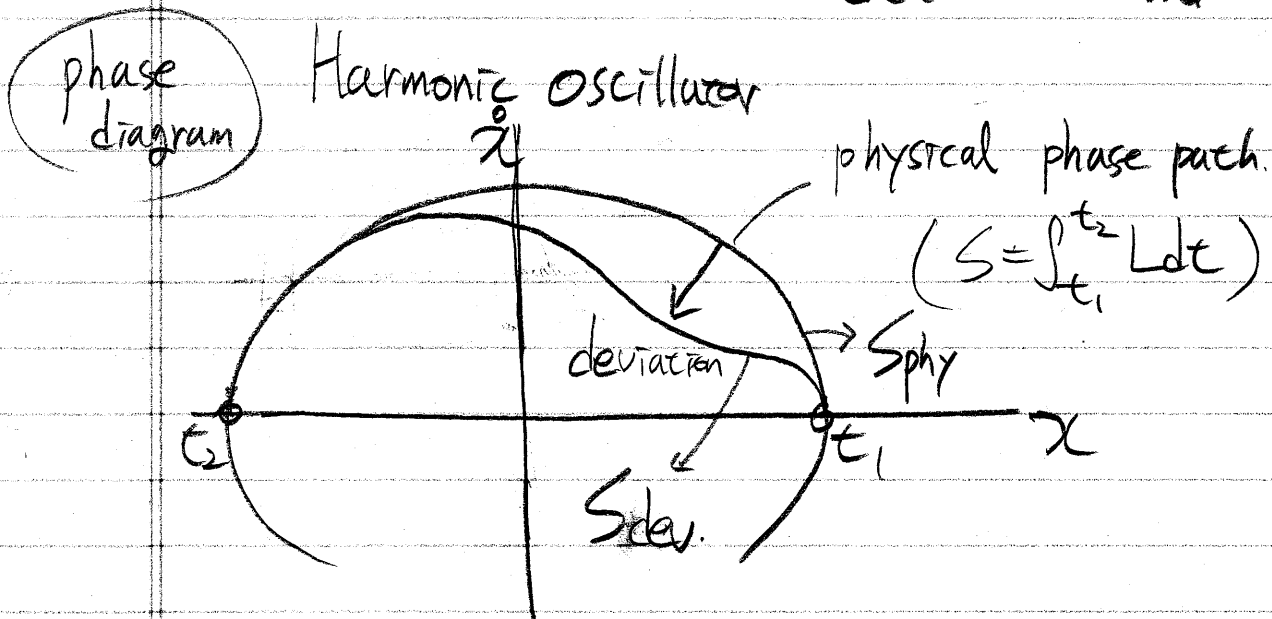 phase
diagram
Harmonic Oscillator
ẋ
physical phase path.
(S = ∫_{t₁}^{t₂} L dt)
deviation
S_phy
t₂
t₁
x
S_dev.